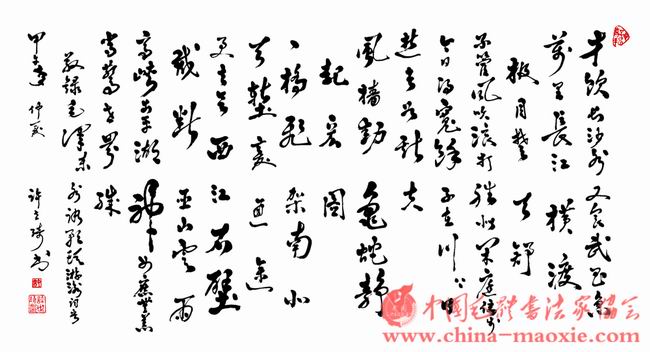 才饮长沙水又食武昌鱼
万里長江横渡
极目楚天舒
不管風吹浪打胜似闲庭信步
今日得寬馀子在川上曰
逝者如斯夫
風樯动龜蛇静
起宏图
一橋飞架南北
天堑变通途
更立西江石壁
截断巫山雲雨
高峡出平湖神女应无恙
当惊世界殊
敬録毛泽东水调歌头游泳词
仲夏
中国毛体书法家协会
www.china-maoxie.com